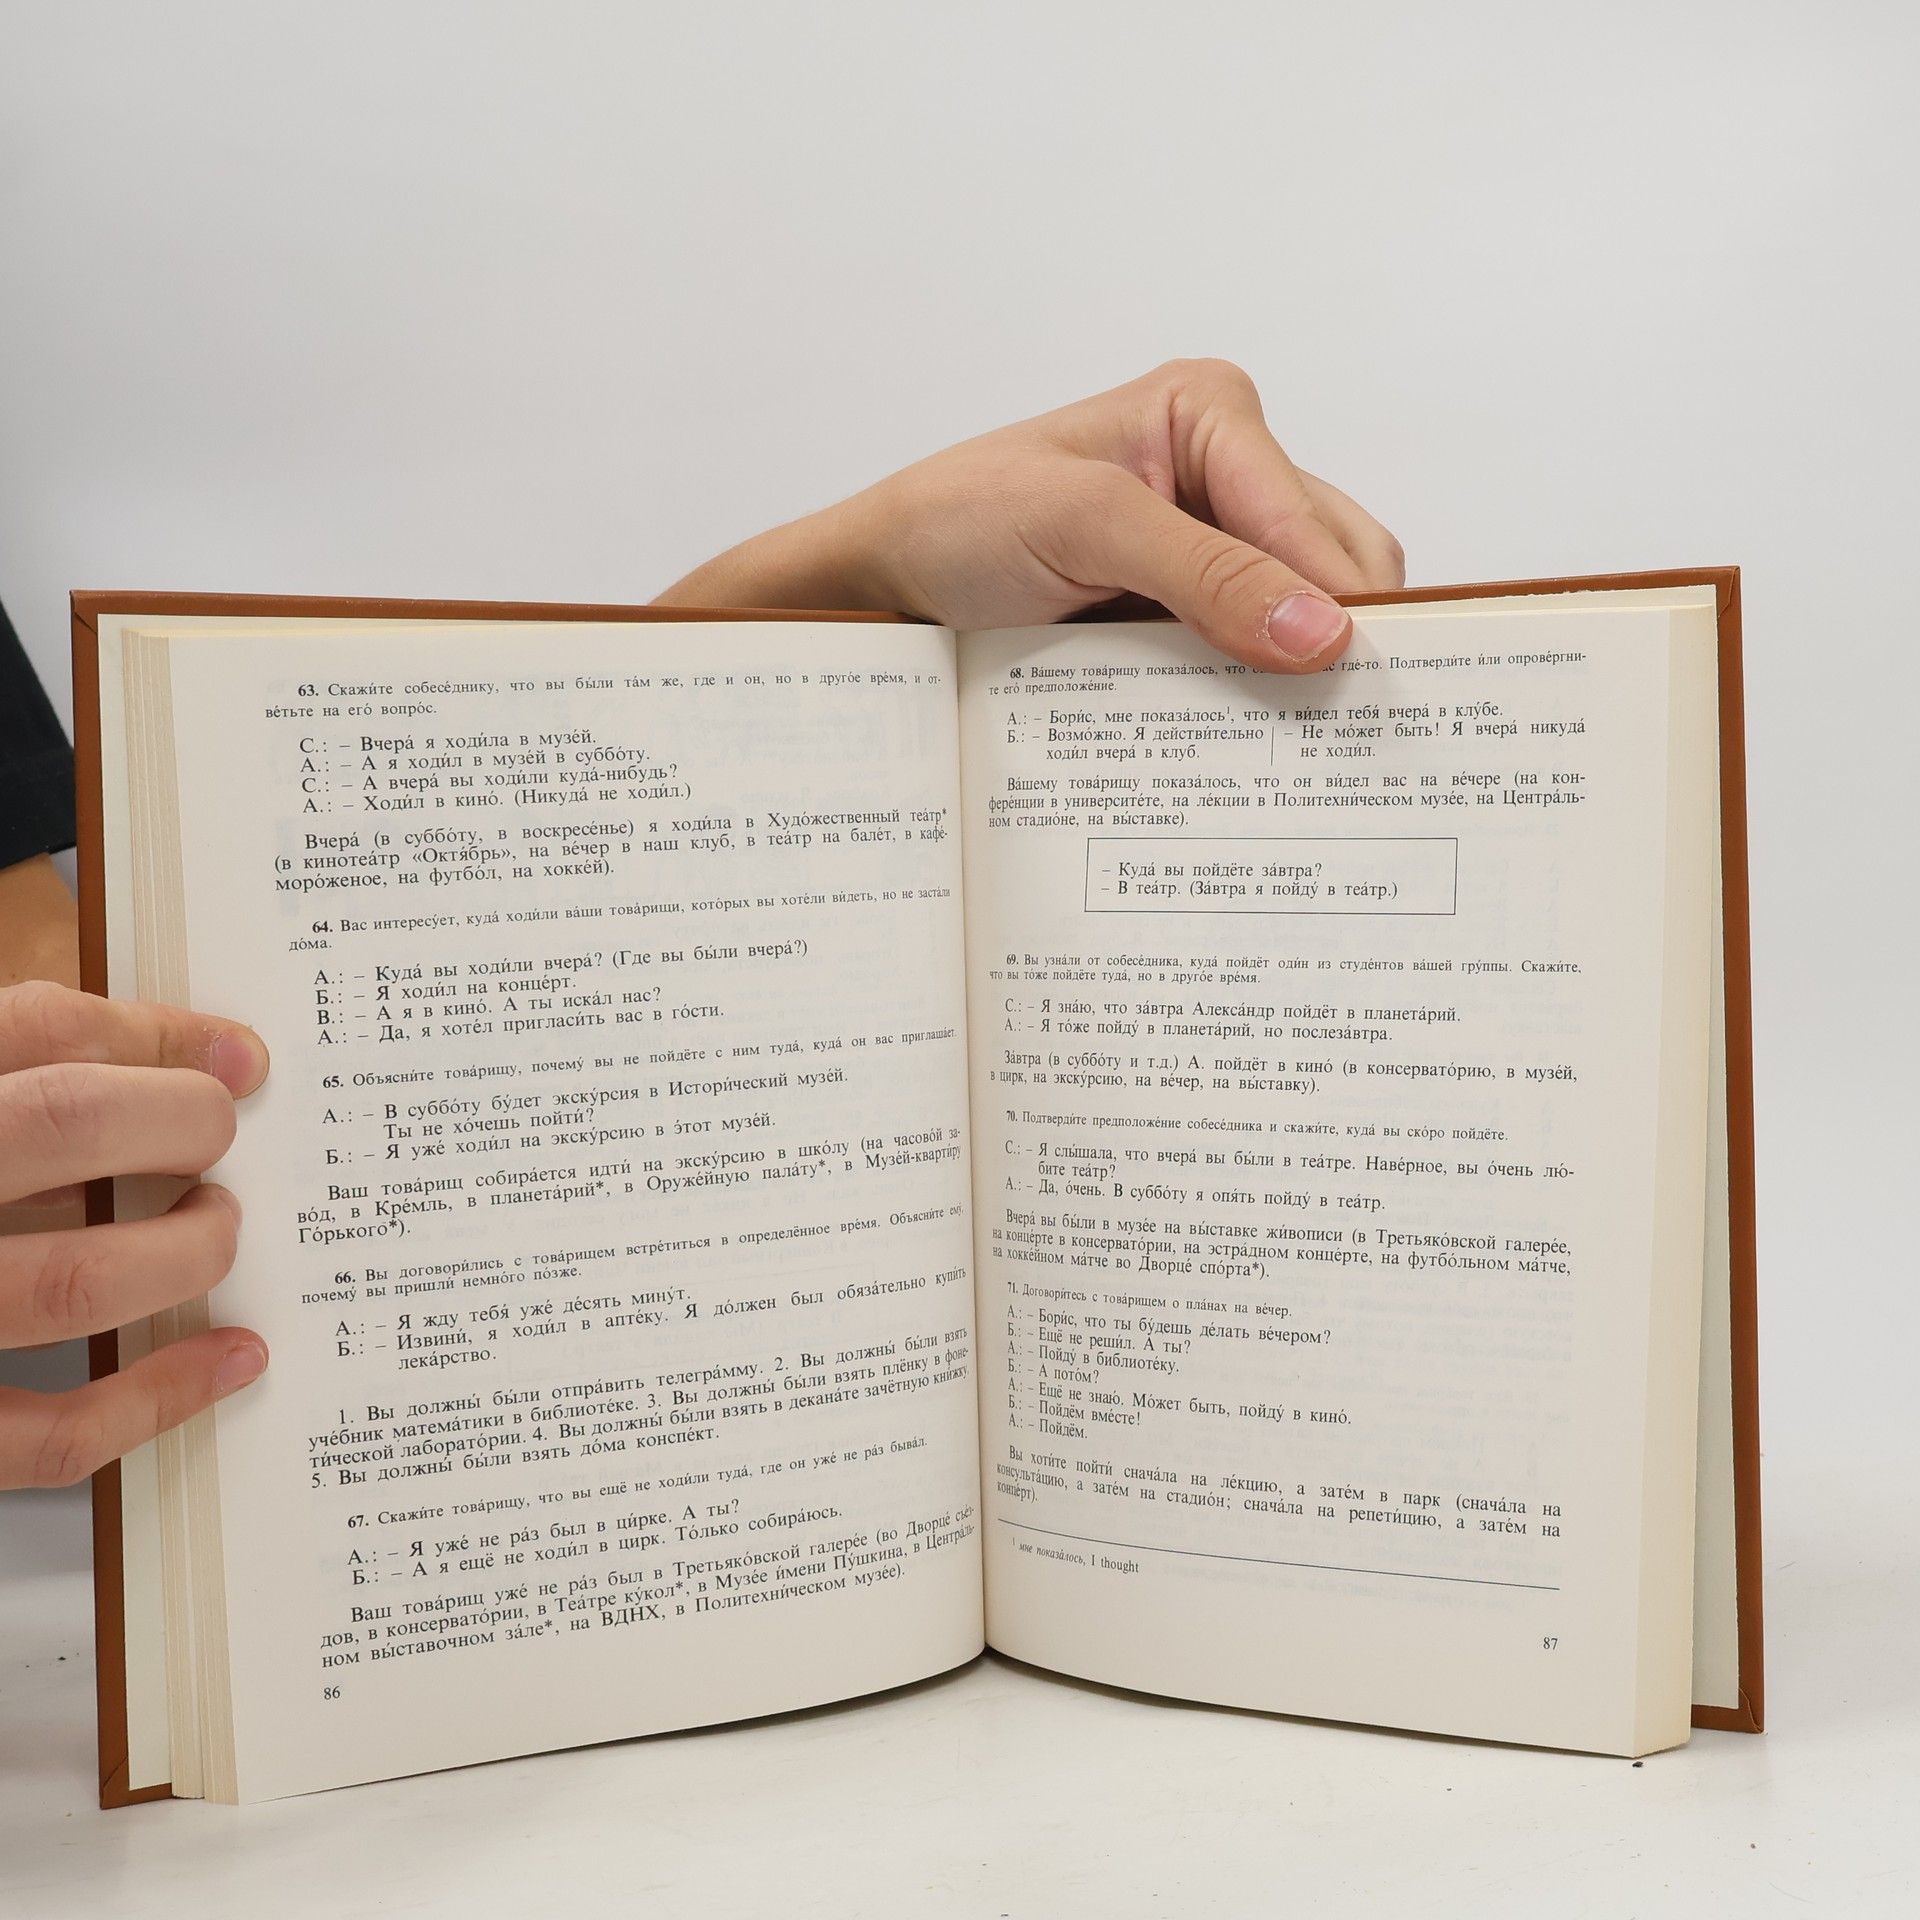 63. Скажи́те собесе́днику, что вы бы́ли та́м же, где и он, но в друго́е вре́мя, и от-
ве́тьте на его́ вопро́с.
С.: – Вчера́ я ходи́ла в музе́й.
А.: – А я ходи́л в музе́й в суббо́ту.
С.: – А вчера́ вы ходи́ли куда́-нибудь?
А.: – Ходи́л в кино́. (Никуда́ не ходи́л.)
Вчера́ (в суббо́ту, в воскресе́нье) я ходи́ла в Худо́жественный теа́тр*
(в кинотеа́тр «Октя́брь», на ве́чер в наш клуб, в теа́тр на бале́т, в кафе́-
моро́женое, на футбо́л, на хокке́й).
64. Вас интересу́ет, куда́ ходи́ли ва́ши това́рищи, кото́рых вы хоте́ли ви́деть, но не заста́ли
до́ма.
А.: – Куда́ вы ходи́ли вчера́? (Где вы бы́ли вчера́?)
Б.: – Я ходи́л на конце́рт.
В.: – А я в кино́. А ты иска́л нас?
А.: – Да, я хоте́л пригласи́ть вас в го́сти.
65. Объясни́те това́рищу, почему́ вы не пойдёте с ним туда́, куда́ он вас приглаша́ет.
А.: – В суббо́ту бу́дет экску́рсия в Истори́ческий музе́й.
Ты не хо́чешь пойти́?
Б.: – Я уже́ ходи́л на экску́рсию в э́тот музе́й.
Ваш това́рищ собира́ется идти́ на экску́рсию в шко́лу (на часово́й за-
во́д, в Кре́мль, в планета́рий*, в Оруже́йную пала́ту*, в Музе́й-кварти́ру
Го́рького*).
66. Вы договори́лись с това́рищем встре́титься в определённое вре́мя. Объясни́те ему́,
почему́ вы пришли́ немно́го по́зже.
А.: – Я жду тебя́ уже́ де́сять мину́т.
Б.: – Извини́, я ходи́л в апте́ку. Я до́лжен был обяза́тельно купи́ть
лека́рство.
1. Вы должны́ бы́ли отпра́вить телегра́мму. 2. Вы должны́ бы́ли взять
уче́бник матема́тики в библиоте́ке. 3. Вы должны́ бы́ли взять плёнку в фоне-
ти́ческой лаборато́рии. 4. Вы должны́ бы́ли взять в декана́те зачётную кни́жку.
5. Вы должны́ бы́ли взять до́ма конспе́кт.
67. Скажи́те това́рищу, что вы ещё не ходи́ли туда́, где он уже́ не ра́з быва́л.
А.: – Я уже́ не ра́з был в ци́рке. А ты?
Б.: – А я ещё не ходи́л в цирк. То́лько собира́юсь.
Ваш това́рищ уже́ не ра́з был в Третьяко́вской галере́е (во Дворце́ съе́з-
дов, в консервато́рии, в Теа́тре ку́кол*, в Музе́е и́мени Пу́шкина, в Центра́ль-
ном вы́ставочном за́ле*, на ВДНХ, в Политехни́ческом музе́е).
86
68. Ва́шему това́рищу показа́лось, что где́-то. Подтверди́те и́ли опрове́ргни-
те его́ предположе́ние.
А.: – Бори́с, мне показа́лось¹, что я ви́дел тебя́ вчера́ в клу́бе.
Б.: – Возмо́жно. Я действи́тельно – Не мо́жет быть! Я вчера́ никуда́
ходи́л вчера́ в клуб. не ходи́л.
Ва́шему това́рищу показа́лось, что он ви́дел вас на ве́чере (на кон-
фере́нции в университе́те, на ле́кции в Политехни́ческом музе́е, на Центра́ль-
ном стадио́не, на вы́ставке).
– Куда́ вы пойдёте за́втра?
– В теа́тр. (За́втра я пойду́ в теа́тр.)
69. Вы узна́ли от собесе́дника, куда́ пойдёт оди́н из студе́нтов ва́шей гру́ппы. Скажи́те,
что вы то́же пойдёте туда́, но в друго́е вре́мя.
С.: – Я зна́ю, что за́втра Алекса́ндр пойдёт в планета́рий.
А.: – Я то́же пойду́ в планета́рий, но послеза́втра.
За́втра (в суббо́ту и т.д.) А. пойдёт в кино́ (в консервато́рию, в музе́й,
в цирк, на экску́рсию, на ве́чер, на вы́ставку).
70. Подтверди́те предположе́ние собесе́дника и скажи́те, куда́ вы ско́ро пойдёте.
С.: – Я слы́шала, что вчера́ вы бы́ли в теа́тре. Наве́рное, вы о́чень лю́-
бите теа́тр?
А.: – Да, о́чень. В суббо́ту я опя́ть пойду́ в теа́тр.
Вчера́ вы бы́ли в музе́е на вы́ставке жи́вописи (в Третьяко́вской галере́е,
на конце́рте в консервато́рии, на эстра́дном конце́рте, на футбо́льном ма́тче,
на хокке́йном ма́тче во Дворце́ спо́рта*).
71. Договори́тесь с това́рищем о пла́нах на ве́чер.
А.: – Бори́с, что ты бу́дешь де́лать ве́чером?
Б.: – Ещё не реши́л. А ты?
А.: – Пойду́ в библиоте́ку.
Б.: – А пото́м?
А.: – Ещё не зна́ю. Мо́жет быть, пойду́ в кино́.
Б.: – Пойдём вме́сте!
А.: – Пойдём.
Вы хоти́те пойти́ снача́ла на ле́кцию, а зате́м в парк (снача́ла на
консульта́цию, а зате́м на стадио́н; снача́ла на репети́цию, а зате́м на
конце́рт).
¹ мне показа́лось, I thought
87